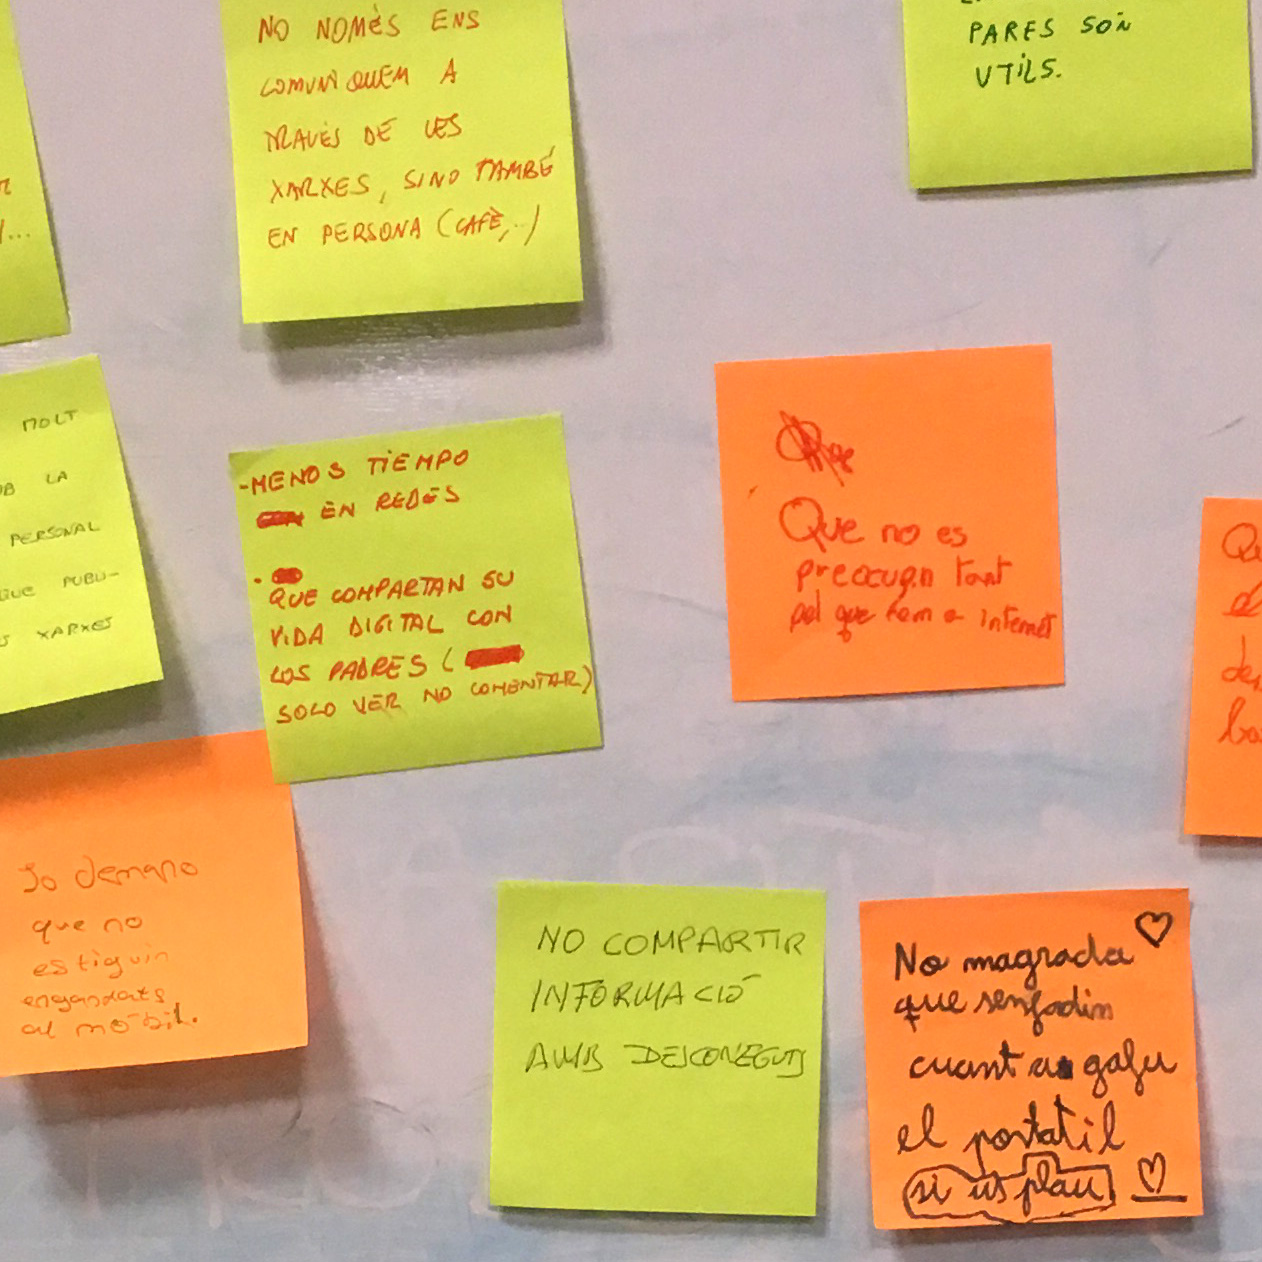 NO NOMÉS ENS
COMUNIQUEM A
TRAVÉS DE LES
XARXES, SINO TAMBÉ
EN PERSONA (CAFÈ,..)
PARES SÓN
UTILS.
MOLT
LA
PERSONAL
QUE PUBLI-
XARXES
-MENOS TIEMPO
EN REDES
.
QUE COMPARTAN SU
VIDA DIGITAL CON
LOS PADRES (
SOLO VER NO COMENTAR)
Que no es
preocupin tant
pel que fem a internet
Jo demano
que no
estiguin
enganxats
al mòbil.
NO COMPARTIR
INFORMACIÓ
AMB DESCONEGUTS
No magrada
que senfadin
cuant a gafu
el portatil
si us plau